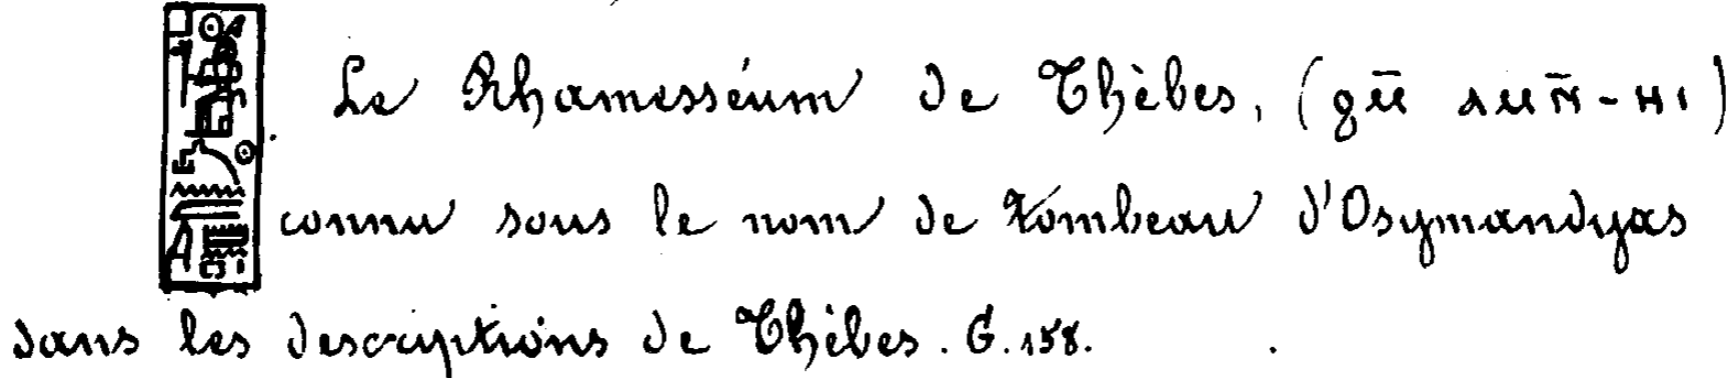 Le Rhamesséum de Thèbes, (
connu sous le nom de tombeau d'Osymandyas
dans les descriptions de Thèbes. G. 158.